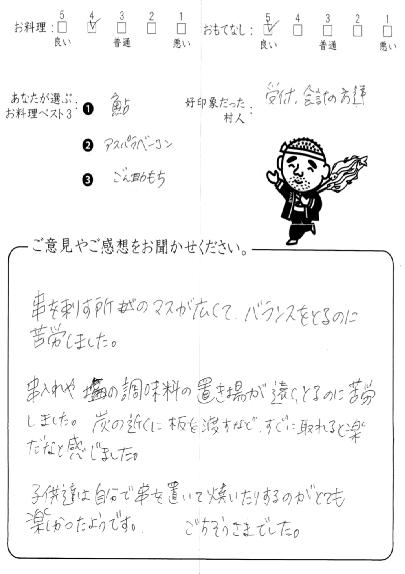 お料理： 5 4 3 2 1
良い 普通 悪い
おもてなし： 5 4 3 2 1
良い 普通 悪い
あなたが選ぶ
お料理ベスト3：
❶ 鮎
❷ アスパラベーコン
❸ ごへいもち
好印象だった
村人：
受付、会計の方達
ご意見やご感想をお聞かせください。
串を刺す所のマスが広くて、バランスをとるのに
苦労しました。
串入れや塩の調味料の置き場が遠く、とるのに苦労
しました。炭の近くに板を渡すなど、すぐに取れると楽
だなと感じました。
子供達は自分で串を置いて焼いたりするのがとても
楽しかったようです。 ごちそうさまでした。